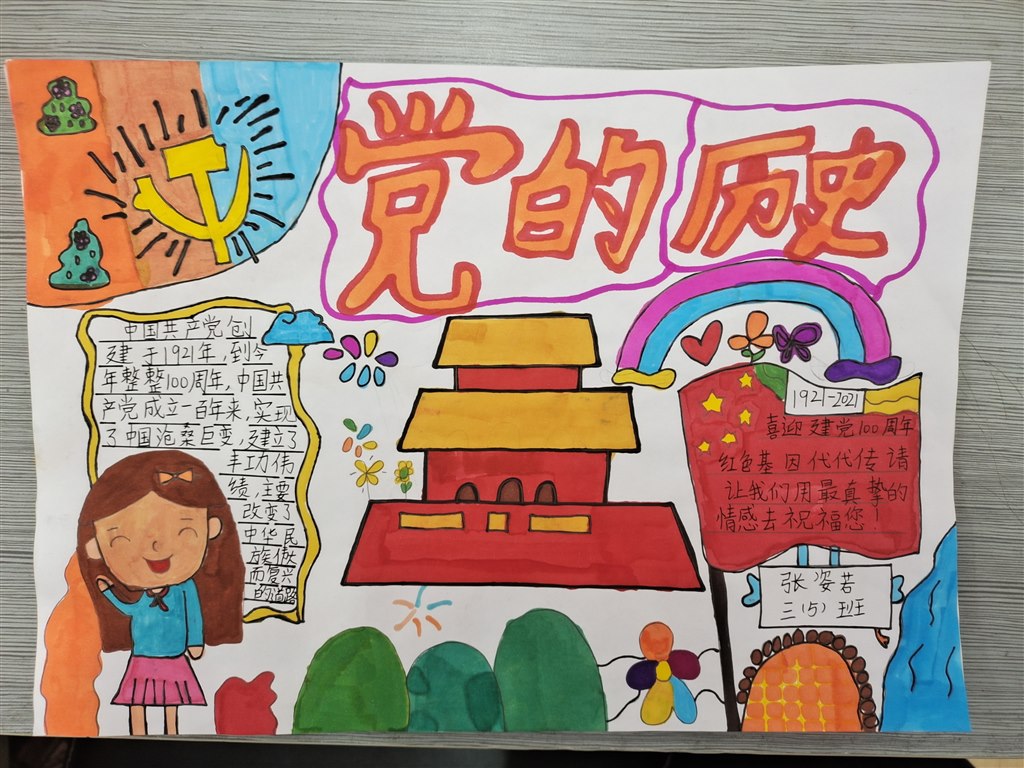 党的历史
中国共产党创
建于1921年,到今
年整整100周年,中国共
产党成立一百年来,实现
了中国沧桑巨变,建立了
丰功伟
绩,主要
改变了
中华民
族伟大
而复兴
的道路
1921-2021
喜迎建党100周年
红色基因代代传请
让我们用最真挚的
情感去祝福您!
张姿若
三(5)班